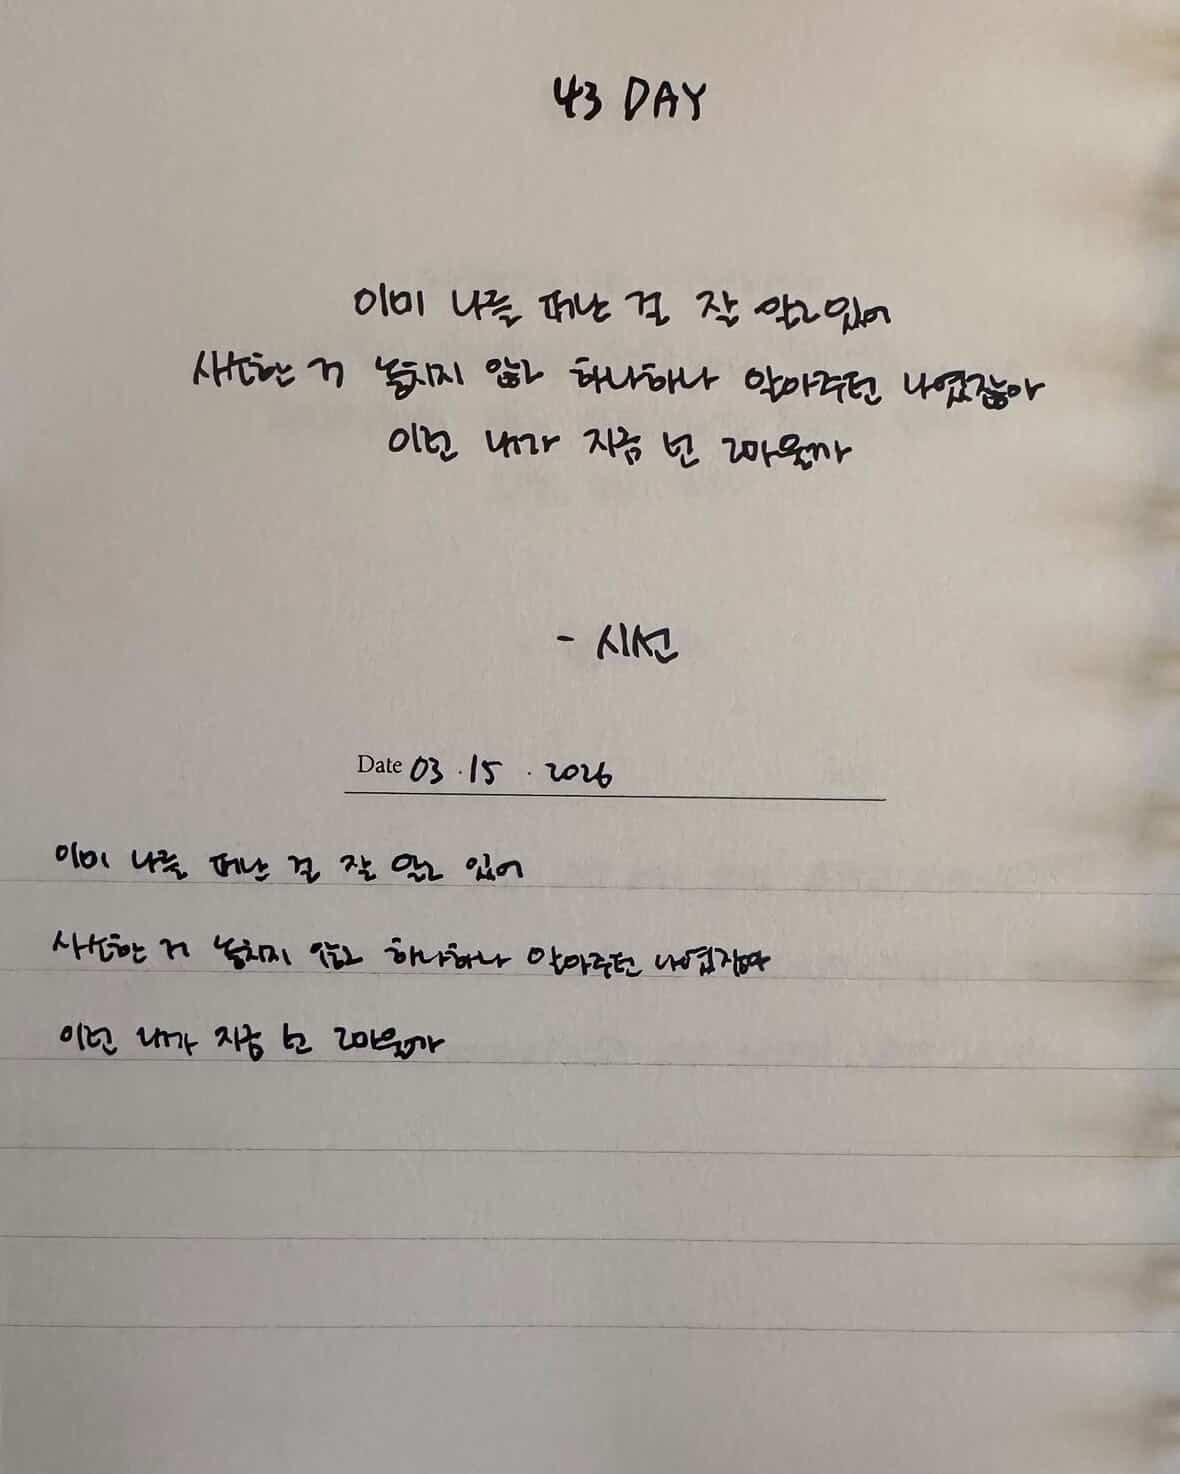 43 DAY
이미 나를 떠난 걸 잘 알고있어
사소한 거 놓치지 않고 하나하나 알아주던 너였잖아
이런 내가 지금 넌 고마울까
- 시선
Date 03 . 15 . 2026
이미 나를 떠난 걸 잘 알고 있어
사소한 거 놓치지 않고 하나하나 알아주던 너였잖아
이런 내가 지금 넌 고마울까